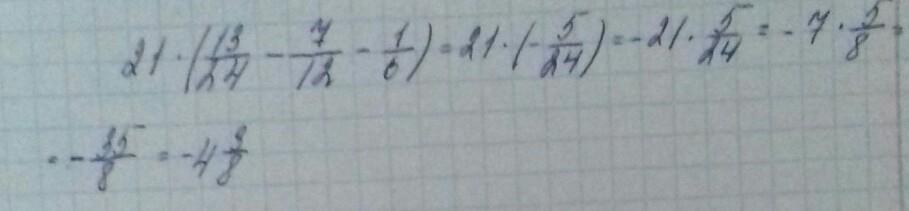 21 · (13/24 - 7/12 - 1/6) = 21 · (-5/24) = -21 · 5/24 = -7 · 5/8 =
= -35/8 = -4 3/8